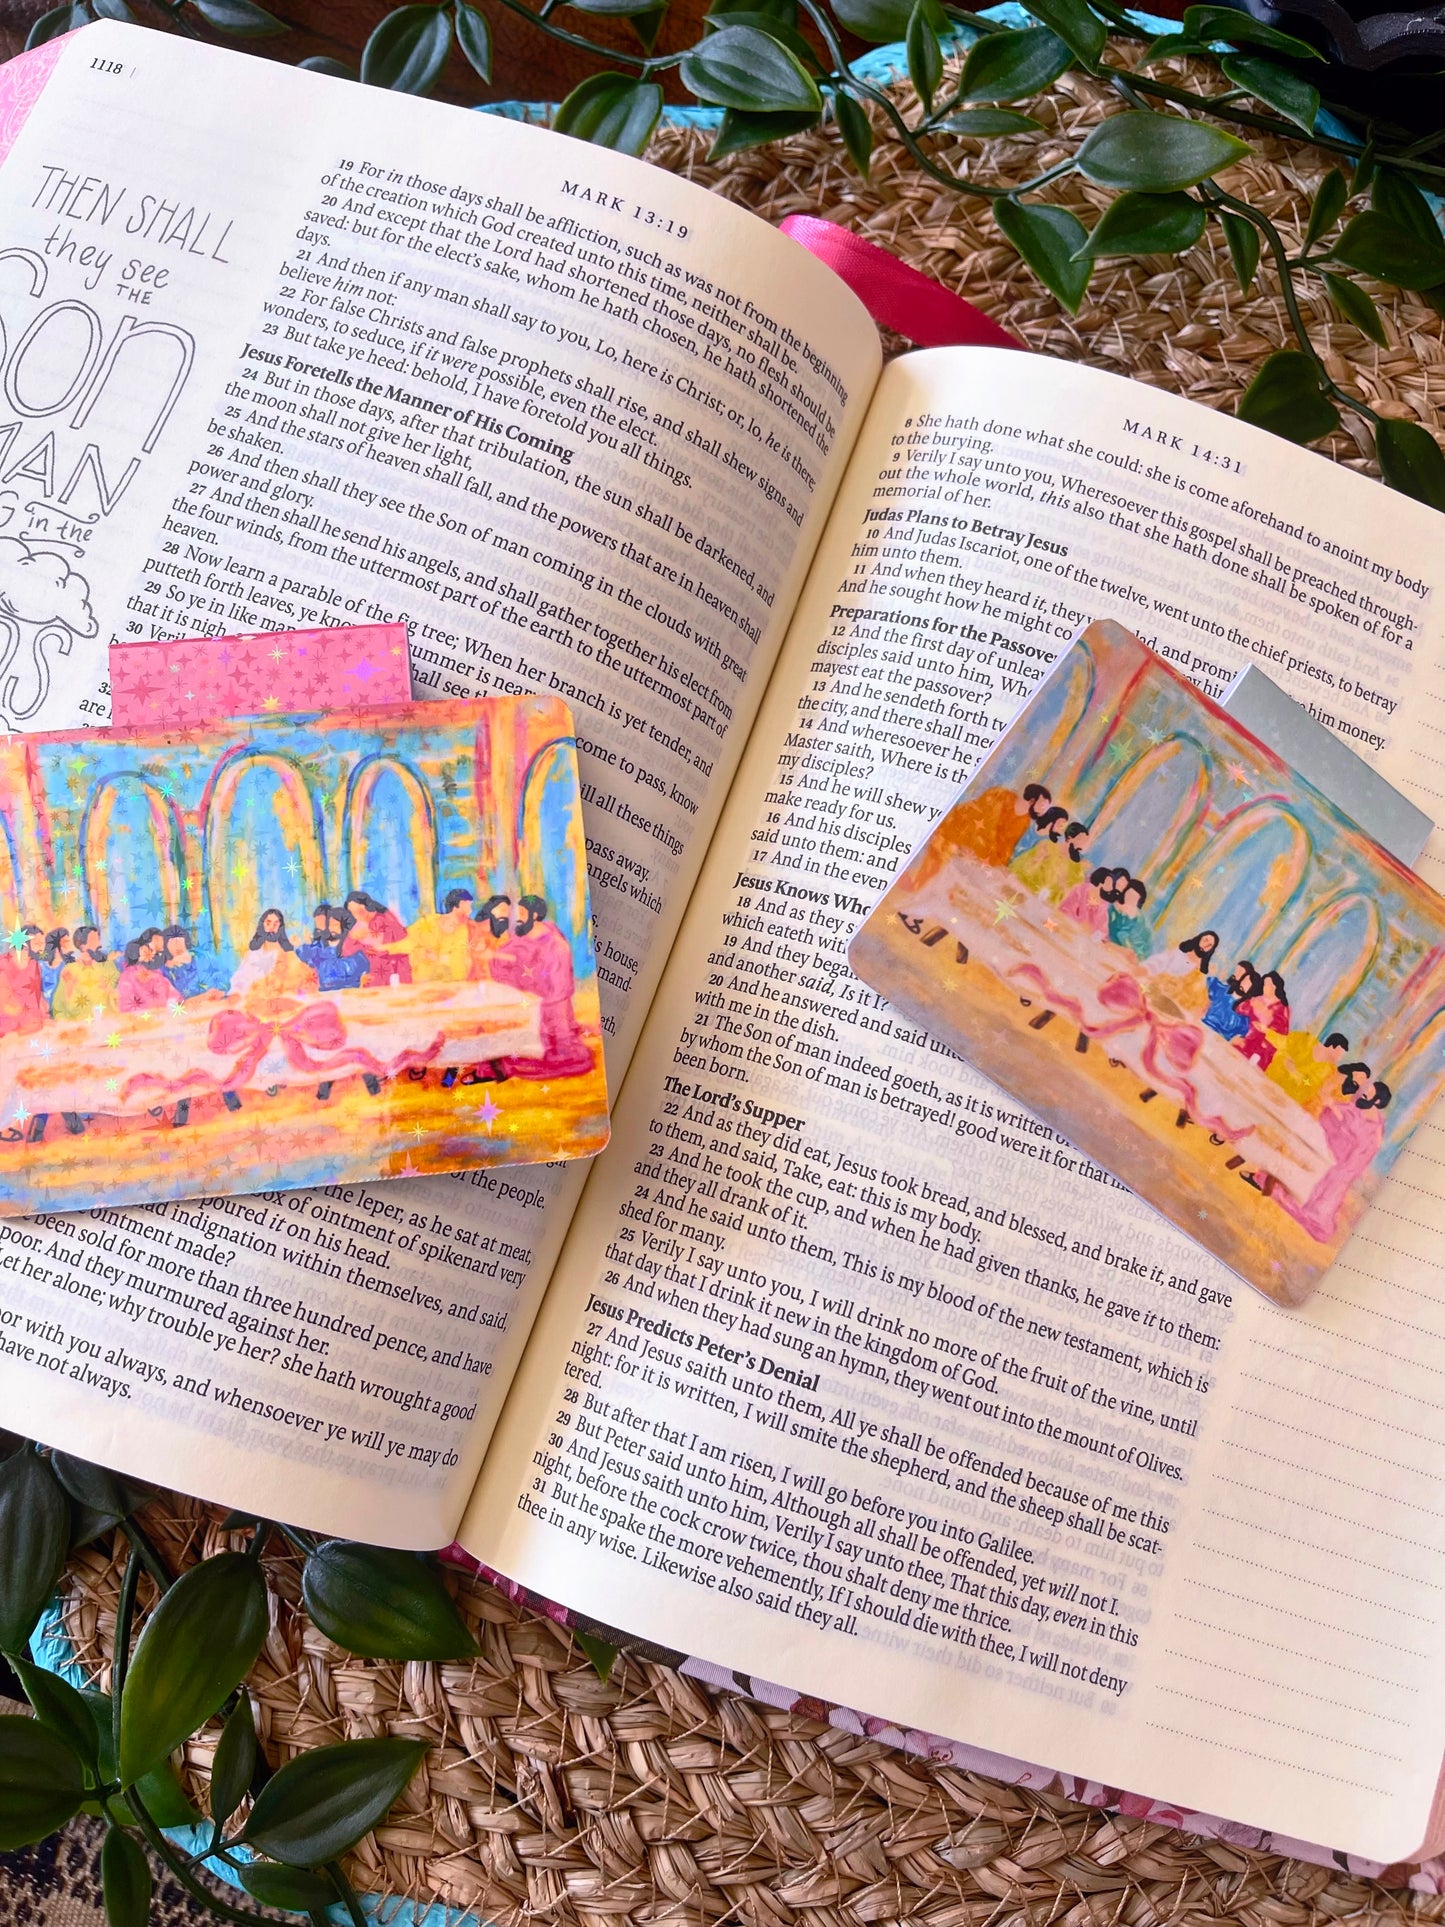 1118
THEN SHALL
they see
THE
Son
MAN
in the
MARK 13:19
19 For in those days shall be affliction, such as was not from the beginning
of the creation which God created unto this time, neither shall be.
20 And except that the Lord had shortened those days, no flesh should be
saved: but for the elect's sake, whom he hath chosen, he hath shortened the
days.
21 And then if any man shall say to you, Lo, here is Christ; or, lo, he is there;
believe him not:
22 For false Christs and false prophets shall rise, and shall shew signs and
wonders, to seduce, if it were possible, even the elect.
23 But take ye heed: behold, I have foretold you all things.
Jesus Foretells the Manner of His Coming
24 But in those days, after that tribulation, the sun shall be darkened, and
the moon shall not give her light,
25 And the stars of heaven shall fall, and the powers that are in heaven shall
be shaken.
26 And then shall they see the Son of man coming in the clouds with great
power and glory.
27 And then shall he send his angels, and shall gather together his elect from
the four winds, from the uttermost part of the earth to the uttermost part of
heaven.
28 Now learn a parable of the fig tree; When her branch is yet tender, and
putteth forth leaves, ye know summer is near
29 So ye in like man shall see th come to pass, know
that it is nigh
30 Veril ill all these things
32 pass away.
are angels which
s.
is house,
mand-
eth,
of the people.
the leper, as he sat at meat,
box of ointment of spikenard very
poured it on his head.
had indignation within themselves, and said,
ointment made?
been sold for more than three hundred pence, and have
poor. And they murmured against her.
Let her alone; why trouble ye her? she hath wrought a good
oor with you always, and whensoever ye will ye may do
have not always.
MARK 14:31
8 She hath done what she could: she is come aforehand to anoint my body
to the burying.
9 Verily I say unto you, Wheresoever this gospel shall be preached through-
out the whole world, this also that she hath done shall be spoken of for a
memorial of her.
Judas Plans to Betray Jesus
10 And Judas Iscariot, one of the twelve, went unto the chief priests, to betray
him unto them.
11 And when they heard it, they lad, and prom him money.
And he sought how he might co hey him
Preparations for the Passover
12 And the first day of unleav
disciples said unto him, Wh
mayest eat the passover?
13 And he sendeth forth tw
the city, and there shall mee
14 And wheresoever he g
Master saith, Where is th
my disciples?
15 And he will shew yo
make ready for us.
16 And his disciples
said unto them: and
17 And in the even
Jesus Knows Who
18 And as they s
which eateth with
19 And they began
and another said, Is it I?
20 And he answered and said unto
with me in the dish.
21 The Son of man indeed goeth, as it is written o
by whom the Son of man is betrayed! good were it for that m
been born.
The Lord's Supper
22 And as they did eat, Jesus took bread, and blessed, and brake it, and gave
to them, and said, Take, eat: this is my body.
23 And he took the cup, and when he had given thanks, he gave it to them:
and they all drank of it.
24 And he said unto them, This is my blood of the new testament, which is
shed for many.
25 Verily I say unto you, I will drink no more of the fruit of the vine, until
that day that I drink it new in the kingdom of God.
26 And when they had sung an hymn, they went out into the mount of Olives.
Jesus Predicts Peter's Denial
27 And Jesus saith unto them, All ye shall be offended because of me this
night: for it is written, I will smite the shepherd, and the sheep shall be scat-
tered.
28 But after that I am risen, I will go before you into Galilee.
29 But Peter said unto him, Although all shall be offended, yet will not I.
30 And Jesus saith unto him, Verily I say unto thee, That this day, even in this
night, before the cock crow twice, thou shalt deny me thrice.
31 But he spake the more vehemently, If I should die with thee, I will not deny
thee in any wise. Likewise also said they all.